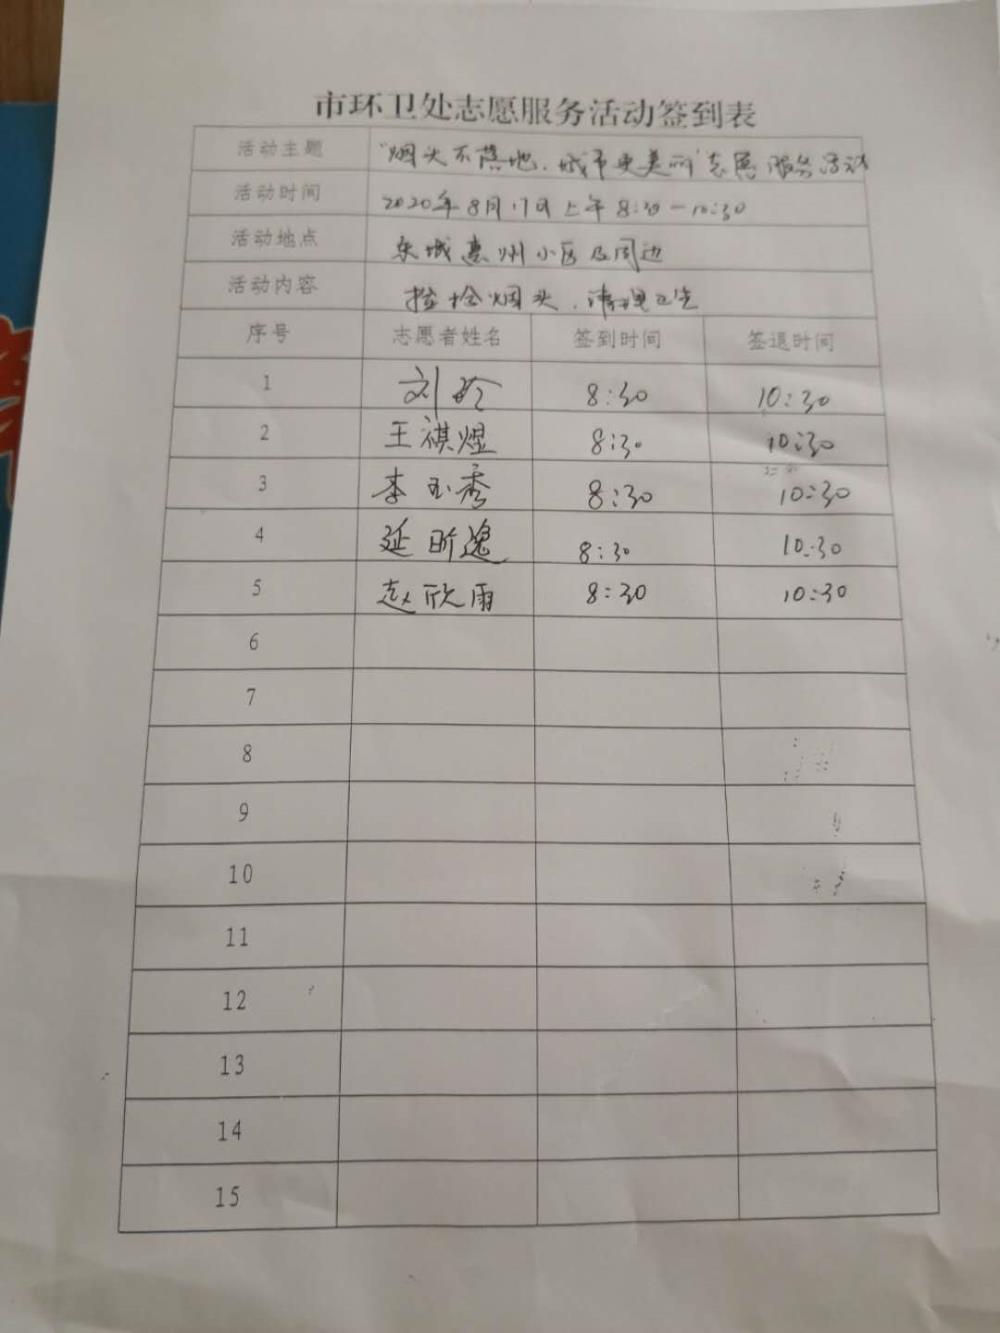 市环卫处志愿服务活动签到表
活动主题 "烟头不落地、城市更美丽"志愿服务活动
活动时间 2020年8月17日上午8:30—10:30
活动地点 东城惠州小区及周边
活动内容 捡拾烟头、清理卫生
序号 志愿者姓名 签到时间 签退时间
1 刘玲 8:30 10:30
2 王祺煜 8:30 10:30
3 李玉秀 8:30 10:30
4 延昕逸 8:30 10:30
5 赵欣雨 8:30 10:30
6
7
8
9
10
11
12
13
14
15